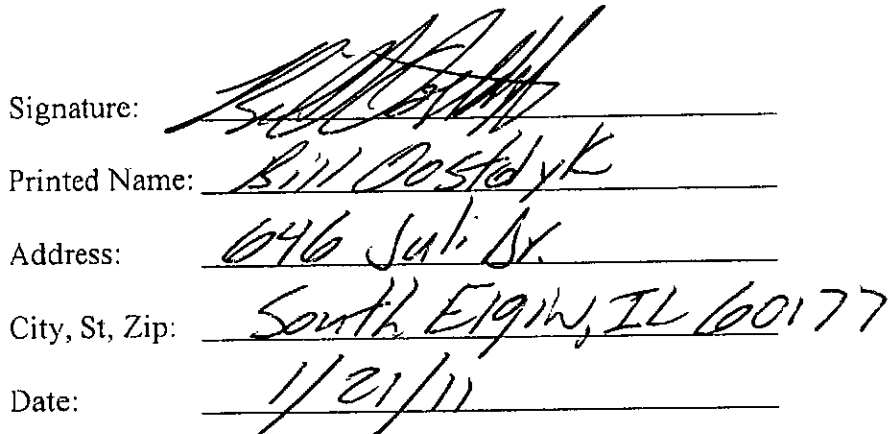 Signature:
Printed Name: Bill Oostdyk
Address: 646 Juli Dr.
City, St, Zip: South Elgin, IL 60177
Date: 1/21/11